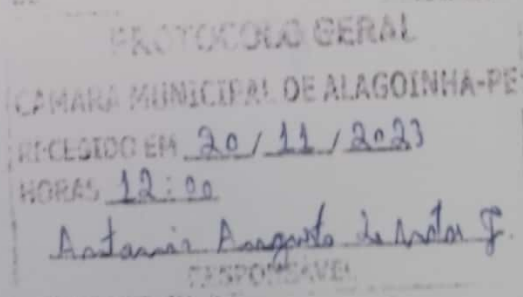 PROTOCOLO GERAL
CAMARA MUNICIPAL DE ALAGOINHA-PE
RECEBIDO EM 20 / 11 / 2023
HORAS 12:00
Antonio Augusto de
RESPONSÁVEL